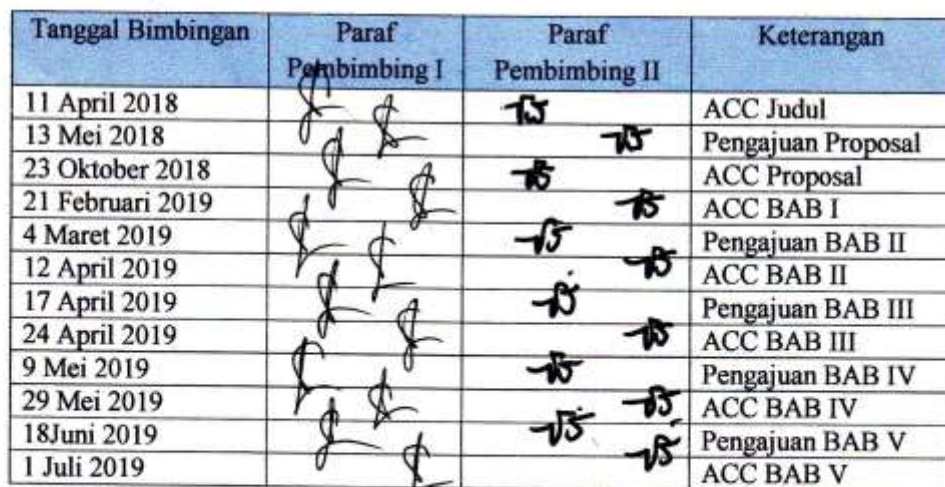 Tanggal Bimbingan Paraf Pembimbing I Paraf Pembimbing II Keterangan
11 April 2018 ACC Judul
13 Mei 2018 Pengajuan Proposal
23 Oktober 2018 ACC Proposal
21 Februari 2019 ACC BAB I
4 Maret 2019 Pengajuan BAB II
12 April 2019 ACC BAB II
17 April 2019 Pengajuan BAB III
24 April 2019 ACC BAB III
9 Mei 2019 Pengajuan BAB IV
29 Mei 2019 ACC BAB IV
18Juni 2019 Pengajuan BAB V
1 Juli 2019 ACC BAB V